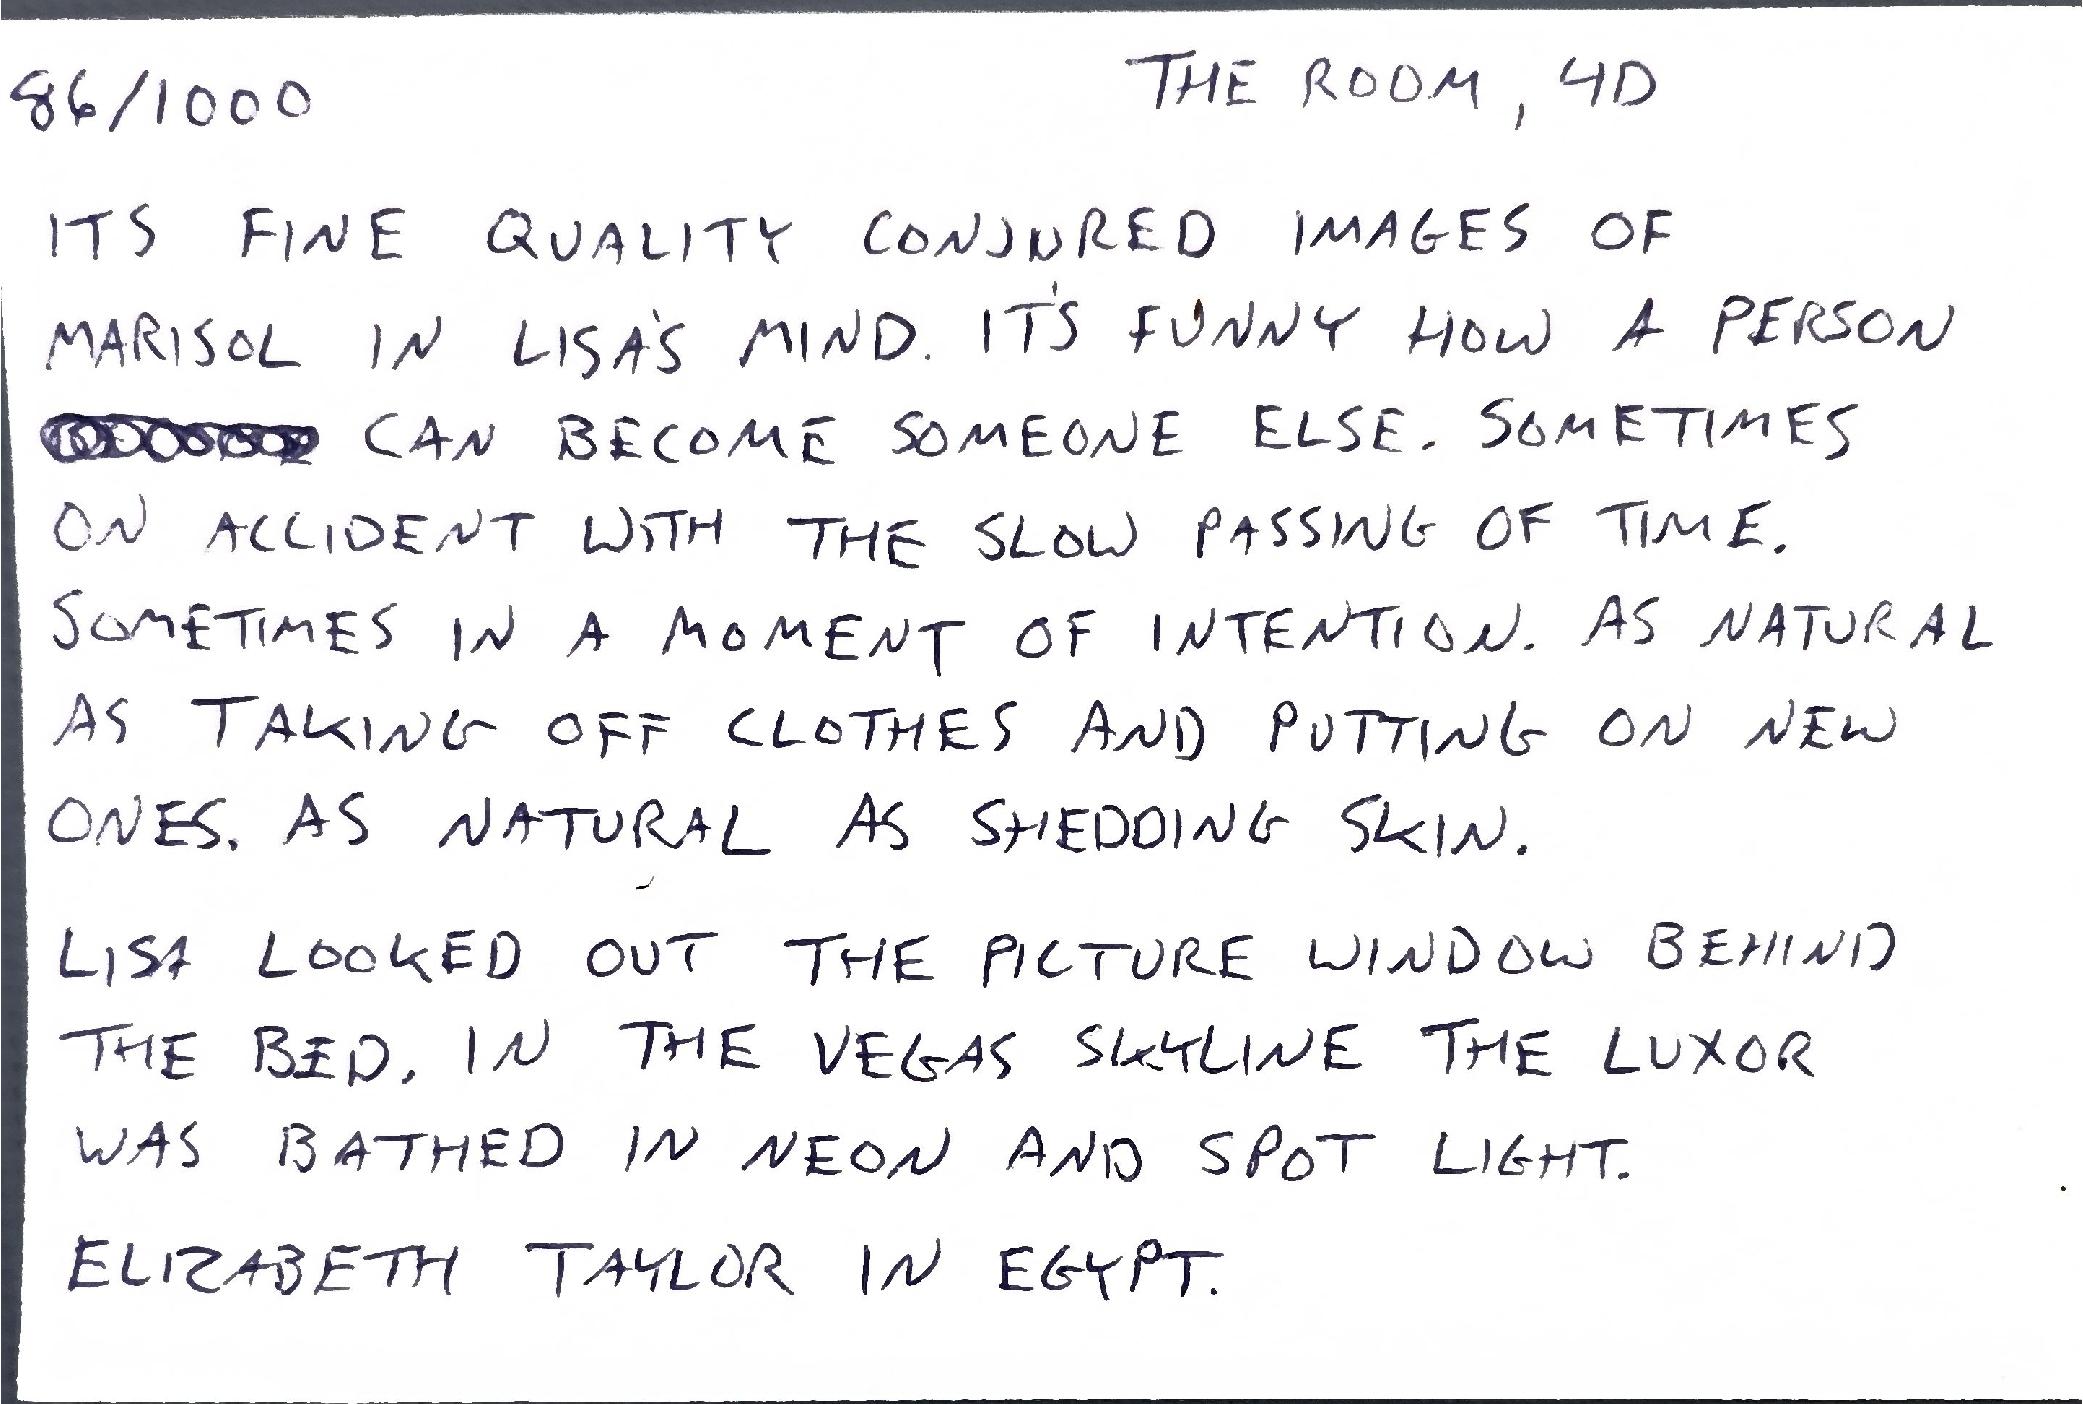 86/1000 THE ROOM, 4D
ITS FINE QUALITY CONJURED IMAGES OF
MARISOL IN LISA'S MIND. IT'S FUNNY HOW A PERSON
CAN BECOME SOMEONE ELSE. SOMETIMES
ON ACCIDENT WITH THE SLOW PASSING OF TIME.
SOMETIMES IN A MOMENT OF INTENTION. AS NATURAL
AS TAKING OFF CLOTHES AND PUTTING ON NEW
ONES. AS NATURAL AS SHEDDING SKIN.
LISA LOOKED OUT THE PICTURE WINDOW BEHIND
THE BED. IN THE VEGAS SKYLINE THE LUXOR
WAS BATHED IN NEON AND SPOT LIGHT.
ELIZABETH TAYLOR IN EGYPT.